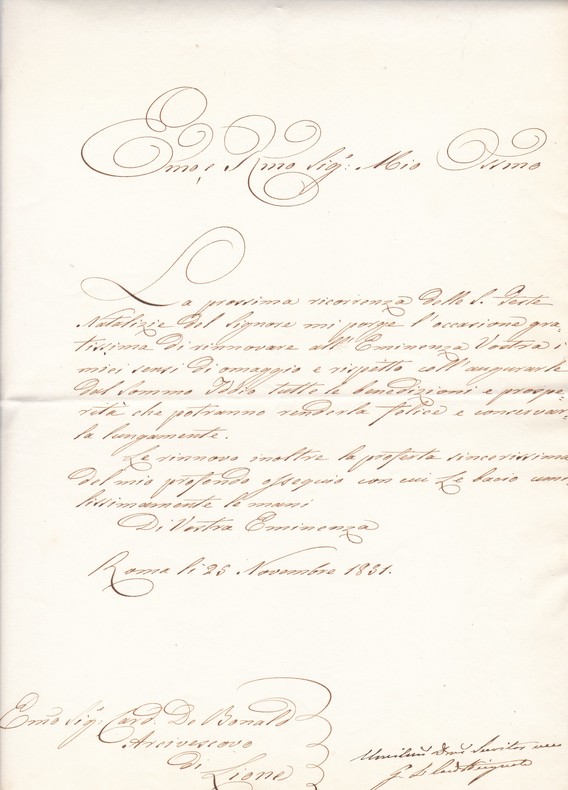 Emo, e Rmo Sigr: Mio Ossmo
La prossima ricorrenza delle S. Feste
Natalizie del Signore mi porge l'occasione gra-
tissima di rinnovare all'Eminenza Vostra i
miei sensi di omaggio e rispetto coll'augurarle
dal Sommo Iddio tutte le benedizioni e prospe-
rità che potranno renderla felice e conservar-
la lungamente.
Le rinnovo inoltre la protesta sincerissima
del mio profondo ossequio con cui Le bacio umi-
lissimamente le mani
Di Vostra Eminenza
Roma li 25 Novembre 1851.
Emo Sigr: Card. De Bonald
Arcivescovo
di
Lione